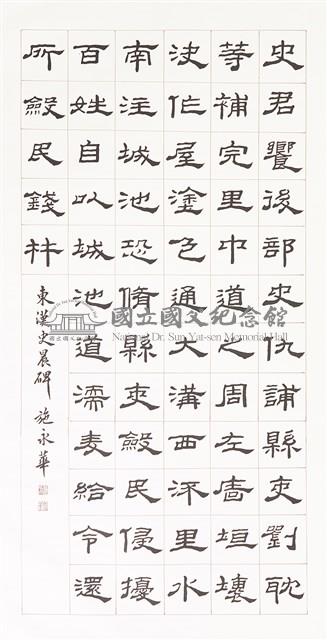 史君饗後部史仇誧縣吏劉耽
等補完里中道之周左廧垣壞
決作屋塗色通大溝西流里水
南注城池恐脩縣吏斂民侵擾
百姓自以城池道濡麥給令還
所斂民錢材
東漢史晨碑 施永華
國立國父紀念館
National Dr. Sun Yat-sen Memorial Hall